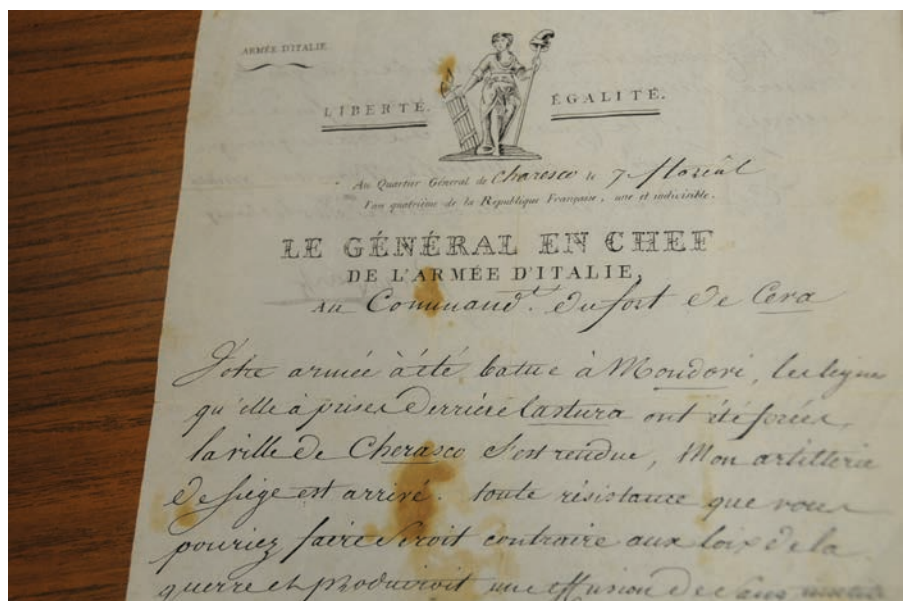 ARMÉE D'ITALIE.
LIBERTÉ. ÉGALITÉ.
Au Quartier Général de Charesco le 7 floreâl
l'an quatrième de la République Française, une et indivisible.
LE GÉNÉRAL EN CHEF
DE L'ARMÉE D'ITALIE,
AU Command.t du fort de Ceva
Votre armée à été batue à Mondovi, les lignes
qu'elle à prises derrière lastura ont été forcées,
la ville de Cherasco s'est rendue, Mon artillerie
de siége est arrivé. toute résistance que vous
pouriez faire seroit contraire aux loix de la
guerre et produiroit une effusion de sang